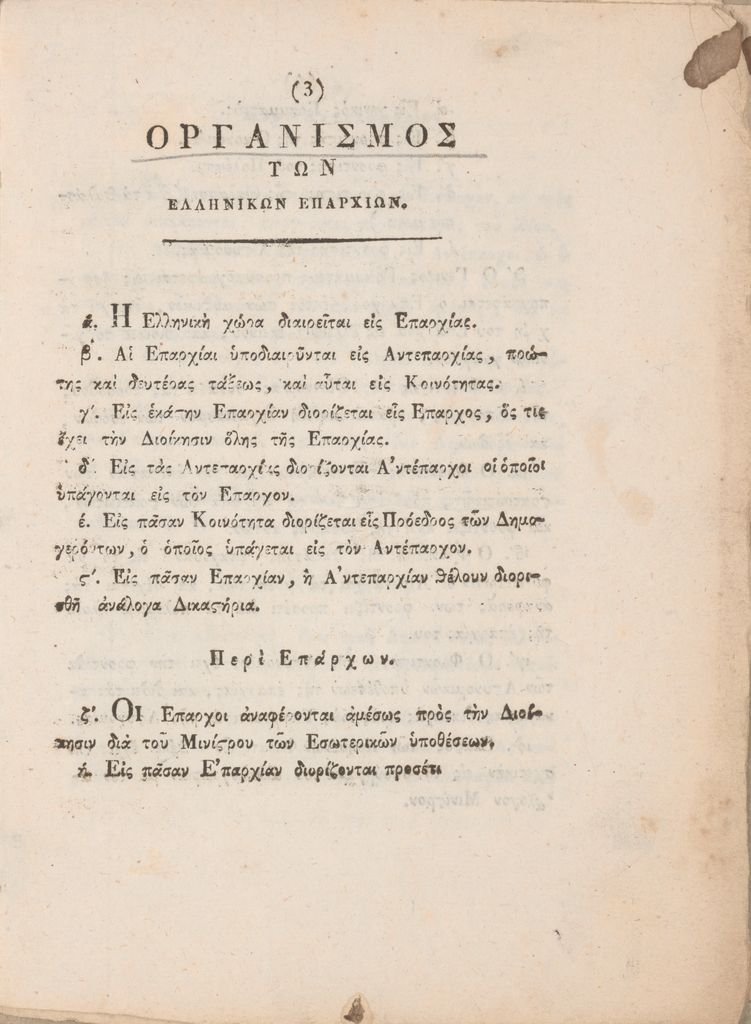 (3)
ΟΡΓΑΝΙΣΜΟΣ
ΤΩΝ
ΕΛΛΗΝΙΚΩΝ ΕΠΑΡΧΙΩΝ.
ά. Η Ελληνικὴ χώρα διαιρεῖται εἰς Επαρχίας.
β'. Αἱ Επαρχίαι ὑποδιαιροῦνται εἰς Αντεπαρχίας, πρώ-
της καὶ δευτέρας τάξεως, καὶ αὗται εἰς Κοινότητας.
γ'. Εἰς ἑκάστην Επαρχίαν διορίζεται εἷς Επαρχος, ὅς τις
ἔχει τὴν Διοίκησιν ὅλης τῆς Επαρχίας.
δ'. Εἰς τὰς Αντεπαρχίας διορίζονται Α'ντέπαρχοι οἱ ὁποῖοι
ὑπάγονται εἰς τὸν Επαρχον.
έ. Εἰς πᾶσαν Κοινότητα διορίζεται εἷς Πρόεδρος τῶν Δημο-
γερόντων, ὁ ὁποῖος ὑπάγεται εἰς τὸν Αντέπαρχον.
ς'. Εἰς πᾶσαν Επαρχίαν, ἢ Α'ντεπαρχίαν θέλουν διορι-
σθῆ ἀνάλογα Δικαϛήρια.
Περὶ Επάρχων.
ζ'. Οἱ Επαρχοι ἀναφέρονται ἀμέσως πρὸς τὴν Διοί-
κησιν διὰ τοῦ Μινίϛρου τῶν Εσωτερικῶν ὑποθέσεων.
ή. Εἰς πᾶσαν Ε'παρχίαν διορίζονται προσέτι